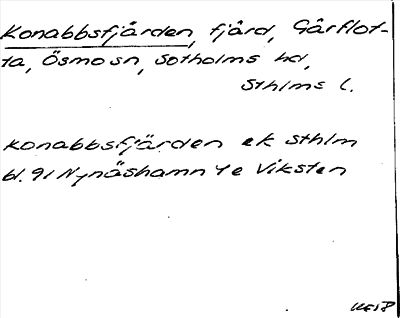 Konabbsfjärden, fjärd, Gårflot-
ta, Ösmo sn, Sotholms hd,
Sthlms l.
Konabbsfjärden ek Sthlm
bl. 91 Nynäshamn 4e Viksten